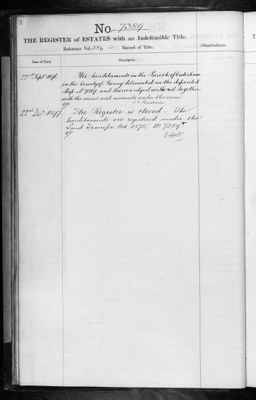 No. 7389
THE REGISTER of ESTATES with an Indefeasible Title.
Entrance Vol. Record of Title.
Observations.
Date of Entry
Description
22nd Sept 1896 The hereditaments in the Parish of Caterham
in the County of Surrey delineated in the deposited
Map No 7389 and thereon edged with red together
with the mines and minerals under the same
22nd 1897 The Register is closed. The
hereditaments are registered under the
Land Transfer Act 1875, No 7389